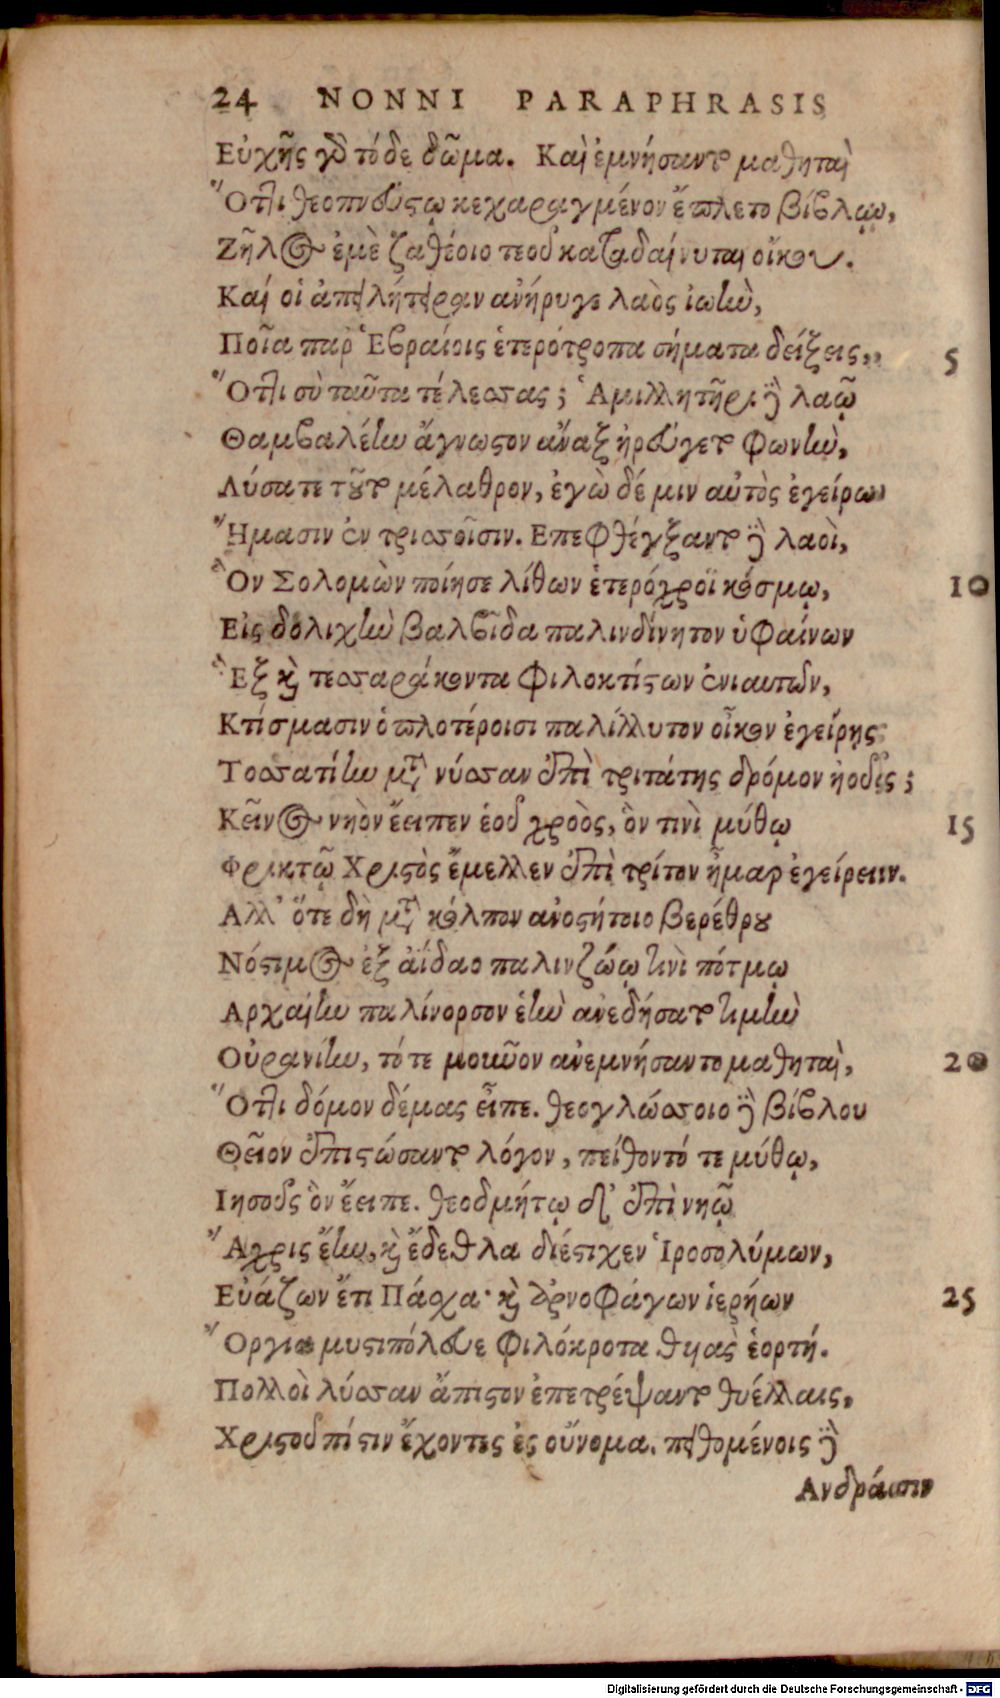 24 NONNI PARAPHRASIS
Εὐχῆς γὰρ τόδε δῶμα. Καὶ ἐμνήσαντο μαθηταὶ
Ὅτι θεοπνεύστῳ κεχαραγμένον ἔπλετο βίβλῳ,
Ζῆλος ἐμὲ ζαθέοιο τεοῦ καταδαίνυται οἴκου.
Καί οἱ ἀπειλήτειραν ἀνήρυγε λαὸς ἰωὴν,
Ποῖα παρ' Ἑβραίοις ἑτερότροπα σήματα δείξεις, 5
Ὅτι σὺ ταῦτα τέλεσσας; Ἀμιλλητῆρι δὲ λαῷ
Θαμβαλέην ἄγνωστον ἄναξ ἠρεύγετο φωνὴν,
Λύσατε τοῦτο μέλαθρον, ἐγὼ δέ μιν αὐτὸς ἐγείρω
Ἤμασιν ἐν τρισσοῖσιν. Επεφθέγξαντο δὲ λαοὶ,
Ὃν Σολομὼν ποίησε λίθων ἑτερόχροϊ κόσμῳ, 10
Εἰς δολιχὴν βαλβῖδα παλινδίνητον ὑφαίνων
Ἓξ καὶ τεσσαράκοντα φιλοκτίστων ἐνιαυτῶν,
Κτίσμασιν ὁπλοτέροισι παλίλλυτον οἶκον ἐγείρῃς
Τοσσατίην μετὰ νύσσαν ἐπὶ τριπάτης δρόμον ἠοῦς;
Κεῖνος νηὸν ἔειπεν ἑοῦ χροὸς, ὃν τινὶ μύθῳ 15
Φρικτῷ Χριστὸς ἔμελλεν ἐπὶ τρίτον ἦμαρ ἐγείρειν.
Αλλ' ὅτε δὴ μετὰ κόλπον ἀνοστήτοιο βερέθρου
Νόστιμος ἐξ ἀΐδαο παλινζώῳ τινὶ πότμῳ
Αρχαίην παλίνορσον ἑὴν ἀνεδήσατο τιμὴν
Οὐρανίην, τότε μοῦνον ἀνεμνήσαντο μαθηταὶ, 20
Ὅτι δόμον δέμας εἶπε. θεογλώσσοιο δὲ βίβλου
Θεῖον ἐπιστώσαντο λόγον, πείθοντό τε μύθῳ,
Ιησοῦς ὃν ἔειπε. θεοδμήτῳ δ' ἐπὶ νηῷ
Ἄχρις ἔην, καὶ ἔδεθλα διέστιχεν Ἱροσολύμων,
Εὐάζων ἔτι Πάσχα· καὶ ἀρνοφάγων ἱερήων 25
Ὄργια μυστιπόλευε φιλόκροτα θυιὰς ἑορτή.
Πολλοὶ λύσσαν ἄπιστον ἐπετρέψαντο θυέλλαις,
Χριστοῦ πίστιν ἔχοντες ἐς οὔνομα. πειθομένοις δὲ
Ανδράσιν
Digitalisierung gefördert durch die Deutsche Forschungsgemeinschaft - DFG